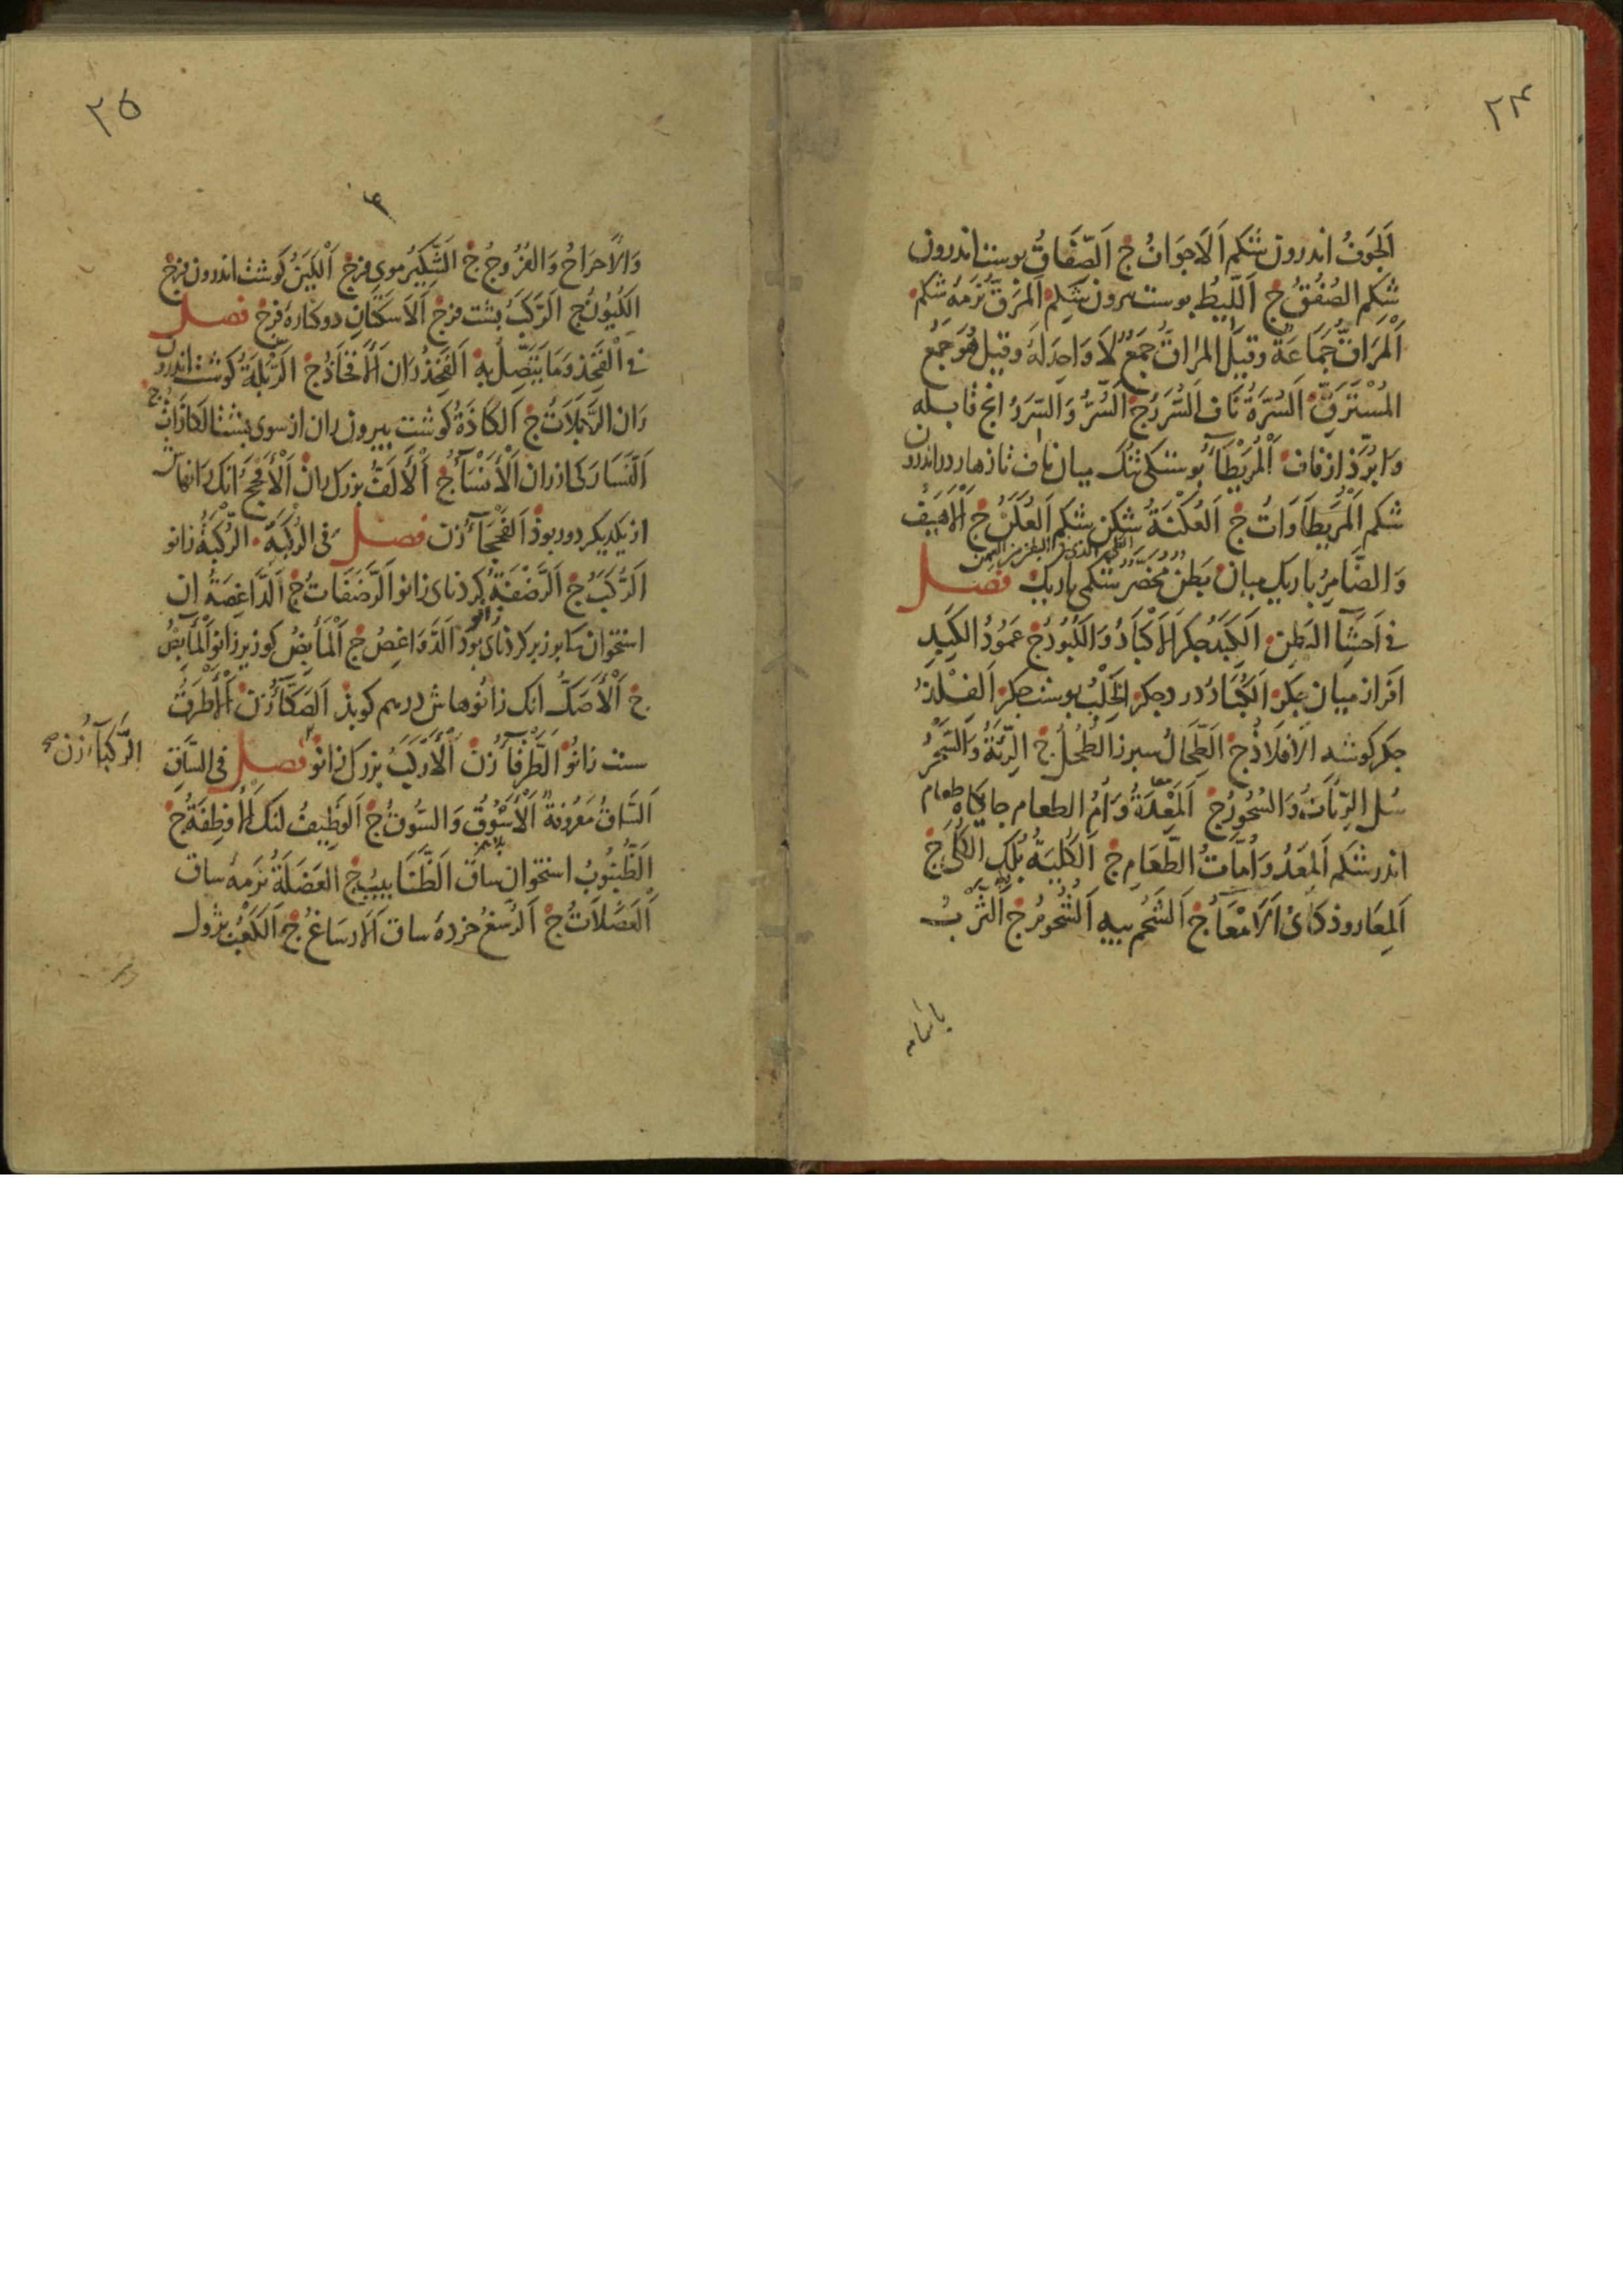 ۲۴
اَلجَوفُ اندرون شکم اَلاَجوَافُ ج اَلصِّفَاقُ بوست اندرون
شکم الصُفُقُ ج اَللِّیطُ بوست بیرون شکم اَلمَرَقُّ نَرمهٔ شکم
اَلْمَرَاقُّ جَمَاعَةٌ وقیل المراقُّ جَمعٌ لاَ وَاحِدَ لَهُ وقیل هُوَ جَمعُ
المُسْتَرَقِّ اَلسُّرَّةُ نَاف اَلسُّرَرُ ج اَلسُّرُّ وَالسَّرَرُ انج قابله
وَا بُرَّذ از ناف اَلْمُرَیْطَآءُ بوستکی تنک میان ناف تا زهار در اندرون
شکم اَلْمُرَیطَاوَاتُ ج اَلعُكْنَةُ شکن شکم اَلعُكَنُ ج اَلْاَهیَفُ
وَالضَّامِرُ باریک میان بَطنٌ مُخَصَّرٌ شکمی باریک فصل
فی اَحشَآءِ البَطنِ اَلکَبِدُ جکر اَلْاَکبَادُ وَالکُبُودُ ج عَمُودُ الکَبِدِ
افراز میان جکر اَلکُبَادُ درد جکر اَلخِلْبُ بوست جکر اَلفِلْذُ
جکر کوشه اَلْاَفلَاذُ ج اَلطِّحَالُ سبرز الطُحُلُ ج اَلرِّئَةُ وَالسَّحْرُ
شُل الرِّئَاتُ وَالسُّحُورُ ج اَلمَعِدَةُ وَاُمُّ الطعام جایکاه طعام
اندر شکم اَلمِعَدُ وَاُمَّاتُ الطَّعَامِ ج اَلکُلیَةُ کُلک الکُلَی ج
اَلمِعَا روذکانی اَلْاَمْعَآءُ ج اَلشَحْم بیه اَلشُّحُومُ ج اَلثَّرْبُ
۲۵
وَالاَحرَاحُ وَالفُرُوجُ ج الشَّکِیرُ موی فرج اَلْکَینُ کوشت اندرون فرج
الکُیُونُ ج اَلرَّکَبُ بشت فرج اَلاَسکَتَانِ دو کنارهٔ فرج فصل
فی اْلفَخِذِ وَمَا یَتَّصِلُ بِهِ اَلفَخِذُ ران اَلْاَفخَاذُ ج اَلرَّبْلَةُ کوشت اندرون
رَان اَلرَّبَلاَتُ ج اَلکَاذَةُ کوشت بیرون ران از سوی بشت الکَاذَاتُ ج
اَلنَّسَا رَکی از ران اَلْاَنْسَآءُ ج اَلْاَلَفُّ بزرک ران اَلْاَفحَجُ انک رانهاش
از یکدیکر دور بوذ اَلفَحجَآءُ زن فصل فی الرُکبَةِ الرُّکبَةُ زانو
اَلرُّکَبُ ج اَلرَّضْفَةُ کرذنای زانو اَلرَّضَفَاتُ ج اَلدَّاغِصَةُ ان
استخوان کابر زبر کرذنای زانو بوَذ اَلدَّوَاغِصُ ج اَلْمَأبِضُ کو زیر زانو اَلْمَآبِضُ
ج اَلْاَصَکُّ انک زانُوهاش درهم کوبذ اَلصَکَّآءُ زن اَلْاَطرَقُ
سست زانُو اَلطَّرْقَآءُ زن اَلْاَرْکَبُ بزرک زانو فصل فی السَّاقِ
الرَّکبَآءُ زن صح
اَلسَّاقُ مَعْرُوفَةٌ اَلْاَسْوُقُ وَالسُّوقُ ج اَلوَظِیفُ لنک اَلْاَوظِفَةُ ج
اَلظُّنبُوبُ استخوان ساق اَلظَّنَابِیبُ ج العَضَلَةُ نَرمهٔ ساق
اَلْعَضَلَاتُ ج اَلرُسْغُ خردهٔ ساق اَلاَرسَاغُ ج اَلکَعْبُ بژول